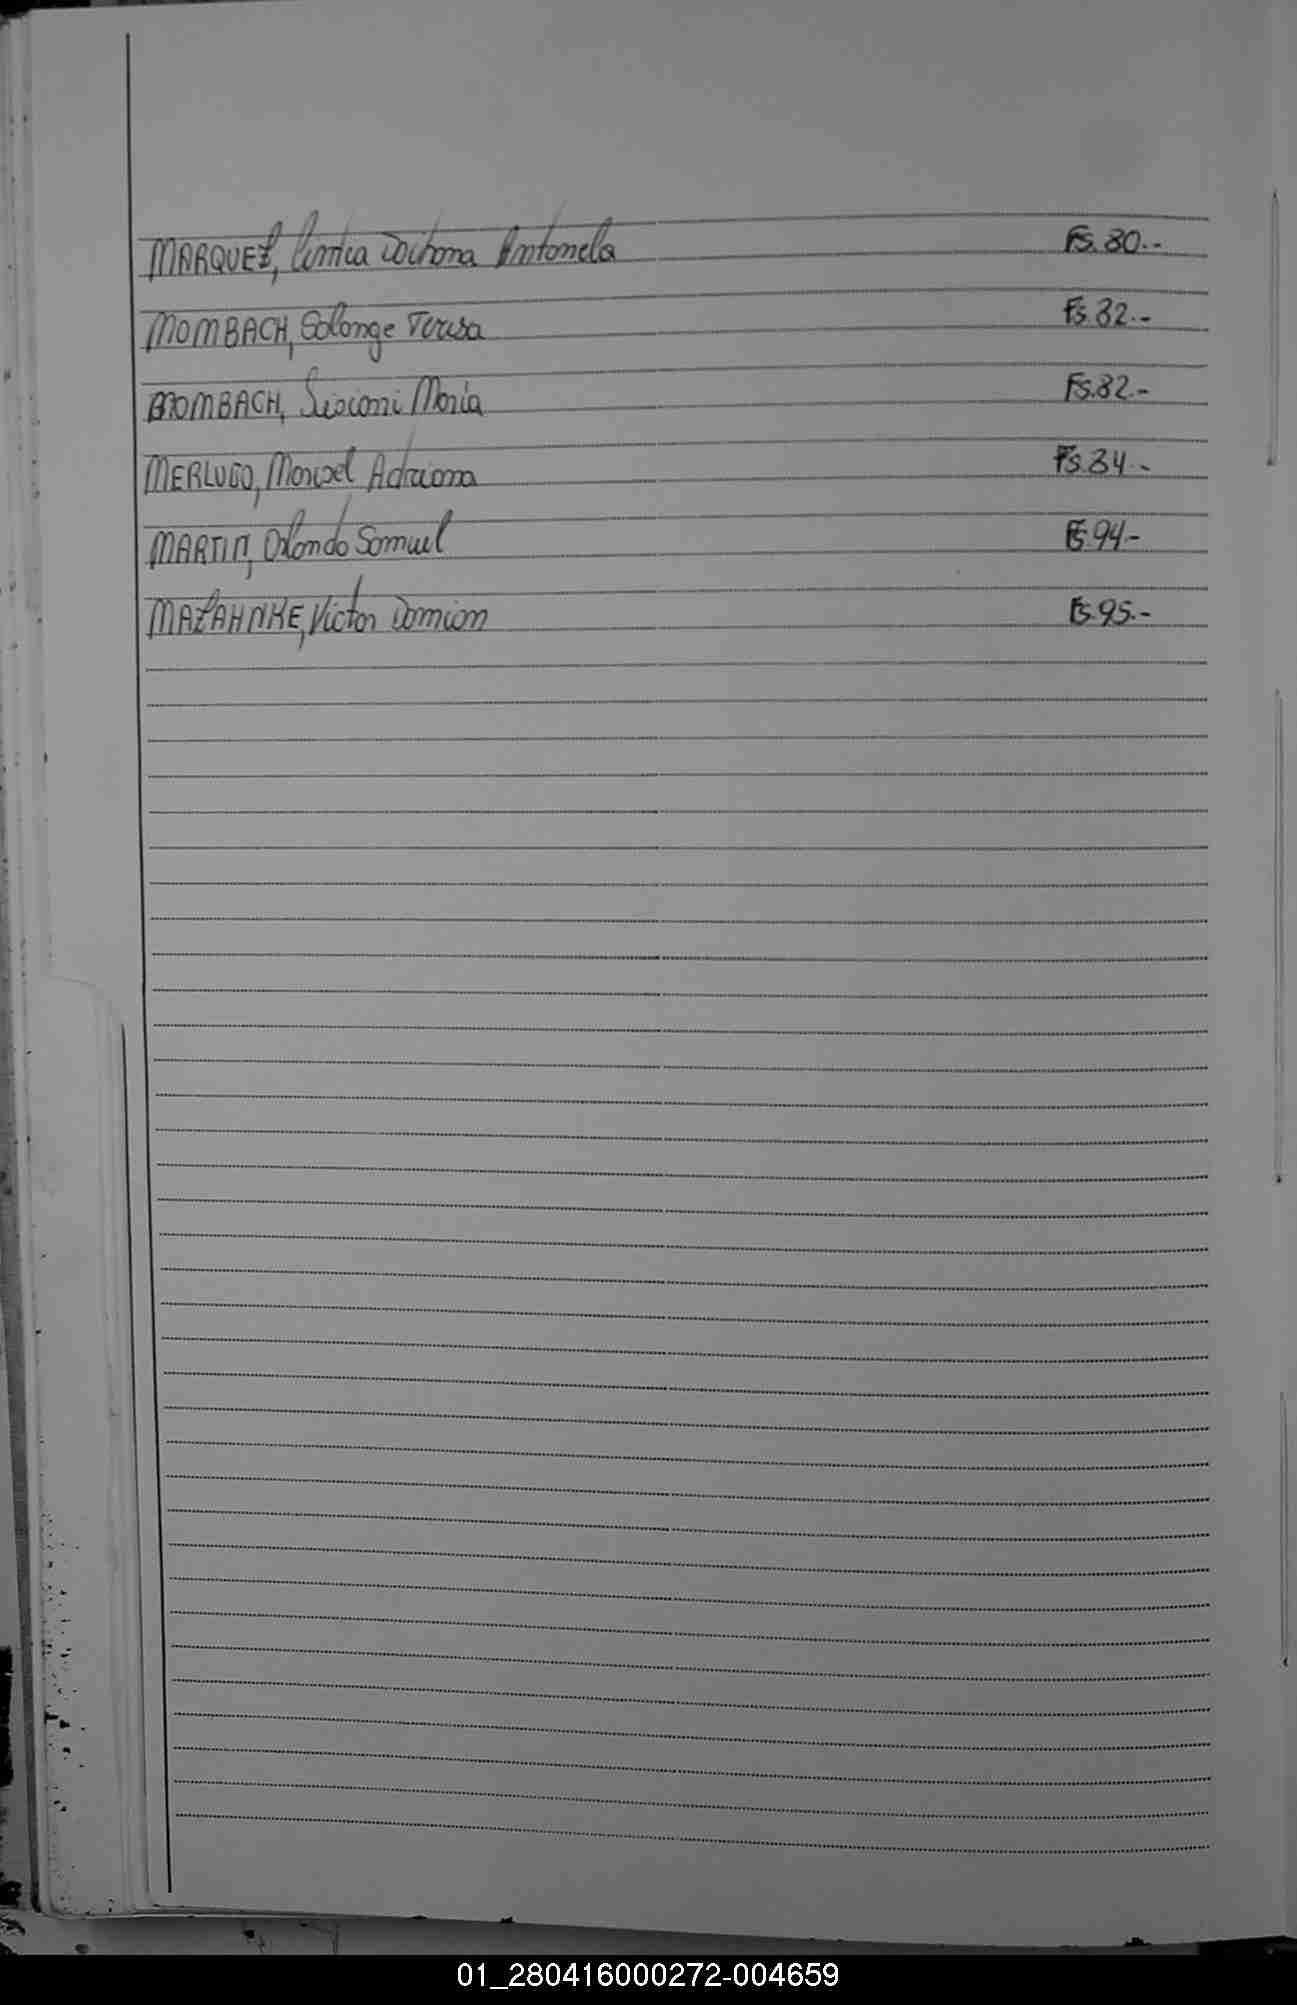 MARQUEZ, Cintia Daihana Antonela Fs. 80.-
MOMBACH, Solange Teresa Fs. 82.-
MOMBACH, Maria Fs. 82.-
MERLUGO, Marisel Adriana Fs. 84.-
MARTIN, Orlando Samuel Fs. 94.-
MAZAHNKE, Victor Damian Fs. 95.-
01_280416000272-004659